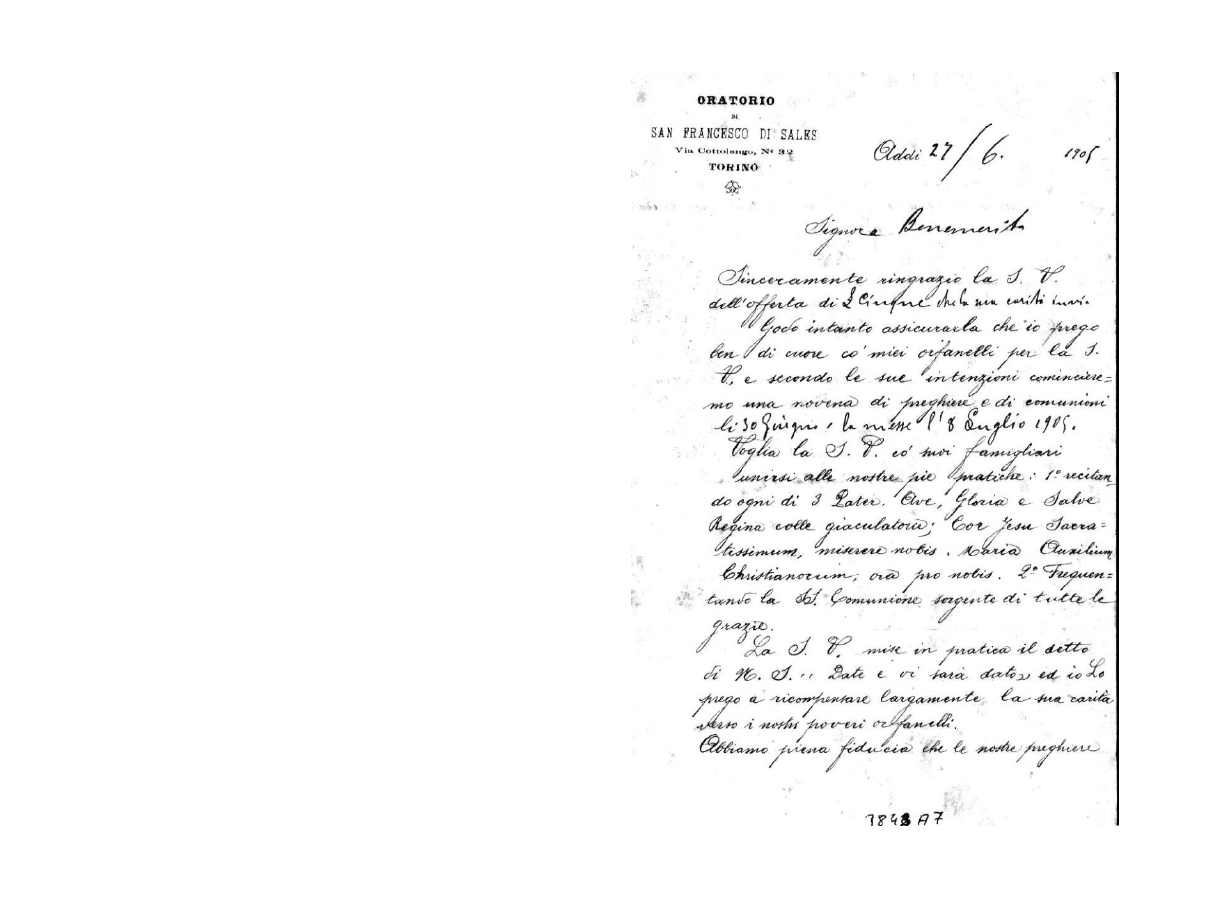 ORATORIO
DI
SAN FRANCESCO DI SALES
Via Cottolengo, N° 32
TORINO
Addi 27/6. 1905
Signora Benemerita
Sinceramente ringrazio la S. V.
dell'offerta di £ Cinque che la sua carità invia.
Godo intanto assicurarla che io prego
ben di cuore co' miei orfanelli per la S.
V. e secondo le sue intenzioni comincere=
mo una novena di preghiere e di comunioni
li 30 Giugno, la messe l'8 Luglio 1905.
Voglia la S. V. co' suoi famigliari
unirsi alle nostre pie pratiche: 1° recitan
do ogni dì 3 Pater. Ave, Gloria e Salve
Regina colle giaculatorie; Cor Jesu Sacra=
tissimum, miserere nobis. Maria Auxilium
Christianorum, ora pro nobis. 2° Frequen=
tando la SS. Comunione sorgente di tutte le
grazie.
La S. V. mise in pratica il detto
di N. S. „ Date e vi sarà dato„ ed io Lo
prego a ricompensare largamente la sua carità
verso i nostri poveri orfanelli.
Abbiamo piena fiducia che le nostre preghiere
3843 A7